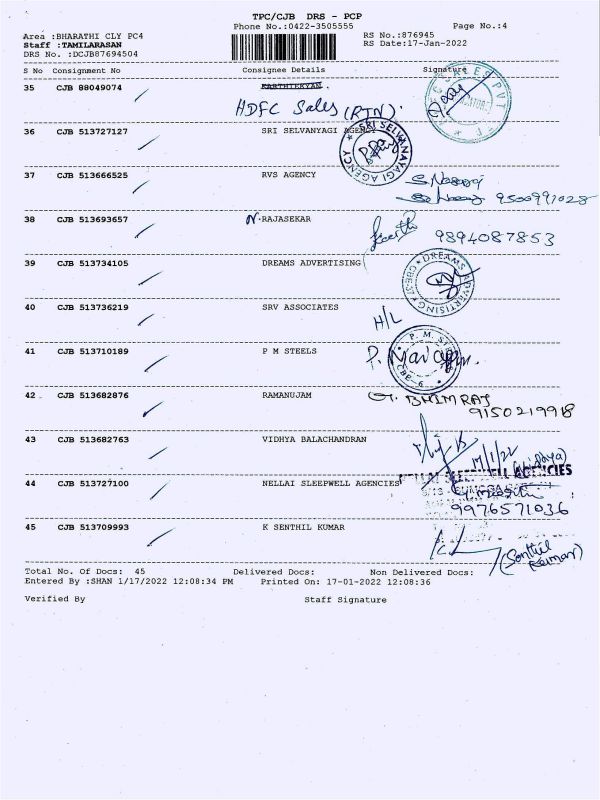 TPC/CJB DRS - PCP
Phone No.:0422-3505555 Page No.:4
Area :BHARATHI CLY PC4 RS No.:876945
Staff :TAMILARASAN RS Date:17-Jan-2022
DRS No. :DCJB87694504
S No Consignment No Consignee Details Signature
35 CJB 88049074 KARTHIEKYAN.
HDFC Sales (RTN).
36 CJB 513727127 SRI SELVANYAGI AGENCY
SRI SELVANAYAGI AGENCY
37 CJB 513666525 RVS AGENCY
9500991028
38 CJB 513693657 N.RAJASEKAR
9894087853
39 CJB 513734105 DREAMS ADVERTISING
DREAMS ADVERTISING
40 CJB 513736219 SRV ASSOCIATES
H/L
41 CJB 513710189 P M STEELS
P. M. CBE-6
42 CJB 513682876 RAMANUJAM
G. BHIMRAJ
9150219918
43 CJB 513682763 VIDHYA BALACHANDRAN
17/1/22
44 CJB 513727100 NELLAI SLEEPWELL AGENCIES
AGENCIES
9976571036
45 CJB 513709993 K SENTHIL KUMAR
(Senthil Kumar)
Total No. Of Docs: 45 Delivered Docs: Non Delivered Docs:
Entered By :SHAN 1/17/2022 12:08:34 PM Printed On: 17-01-2022 12:08:36
Verified By Staff Signature